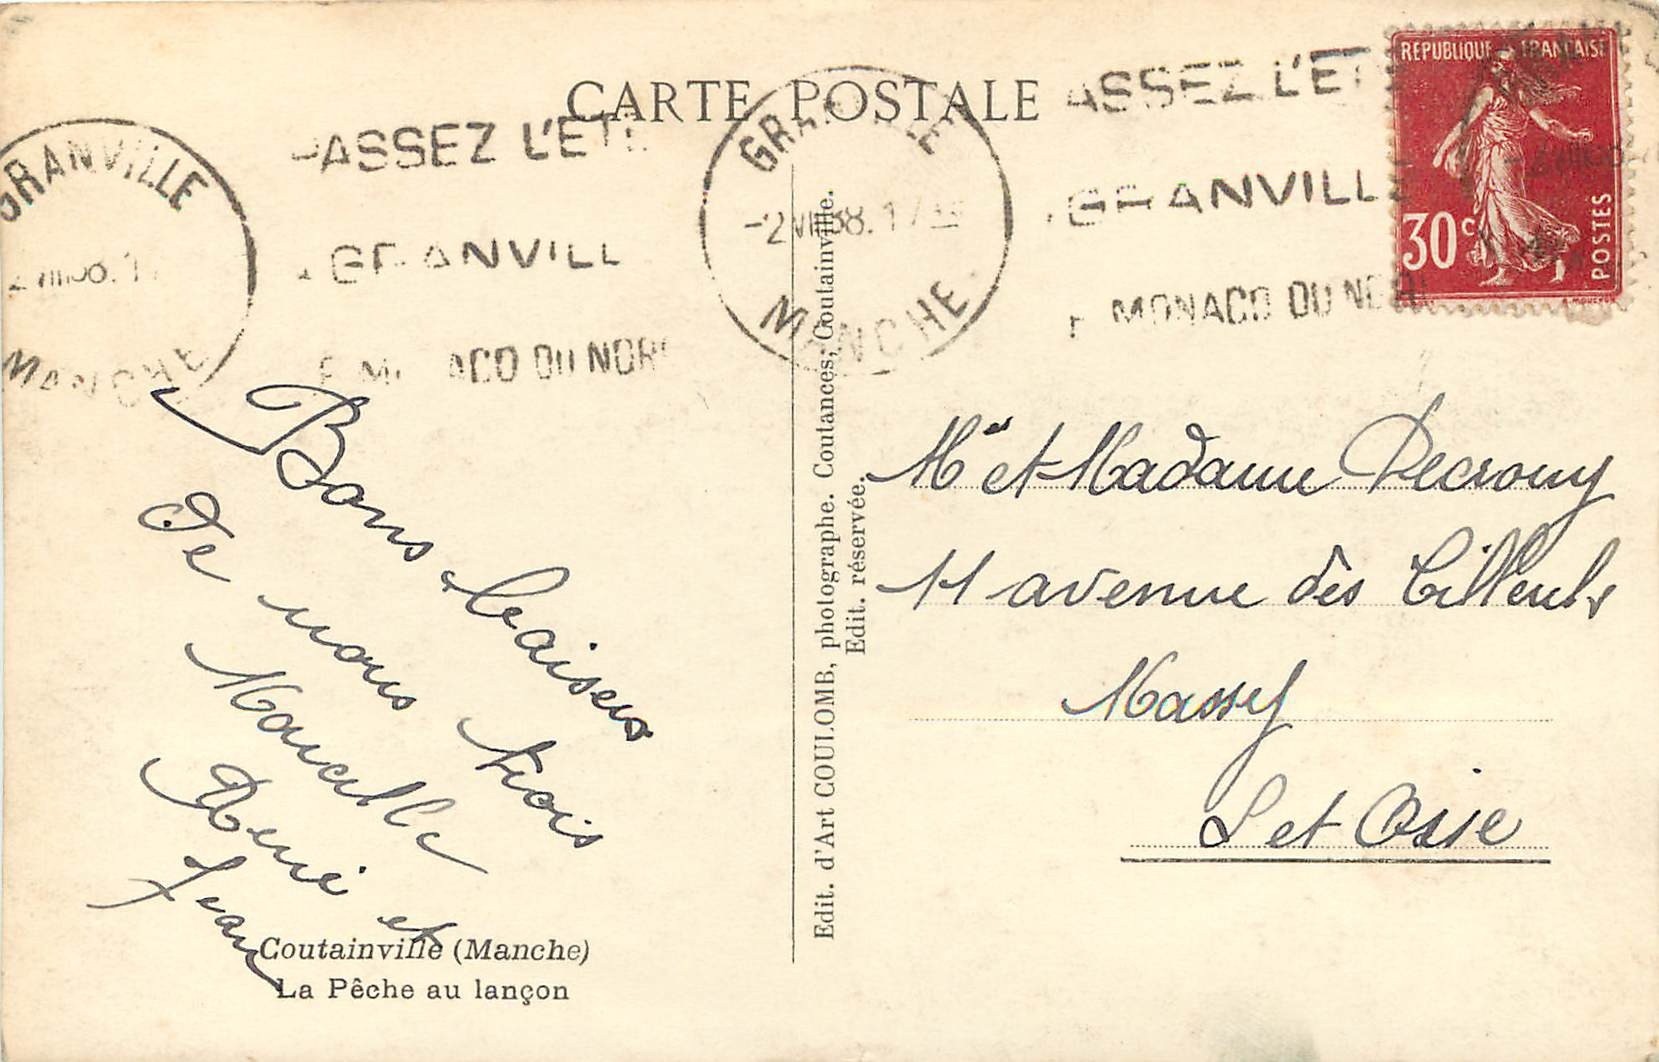 CARTE POSTALE
REPUBLIQUE FRANCAISE
30c
POSTES
GRANVILLE
MANCHE
ASSEZ L'ETE
GRANVILL
MONACO DU NORD
GRANVILLE
-2 VIII 38. 17
MANCHE
ASSEZ L'ETE
GRANVILLE
MONACO DU NORD
Bons baisers
De nous trois
Marcelle
René et
Jean
Coutainville (Manche)
La Pêche au lançon
Edit. d'Art COULOMB, photographe. Coutances, Coutainville.
Edit. réservée.
Mr et Madame Decrouy
11 avenue des Tilleuls
Massy
S et Oise